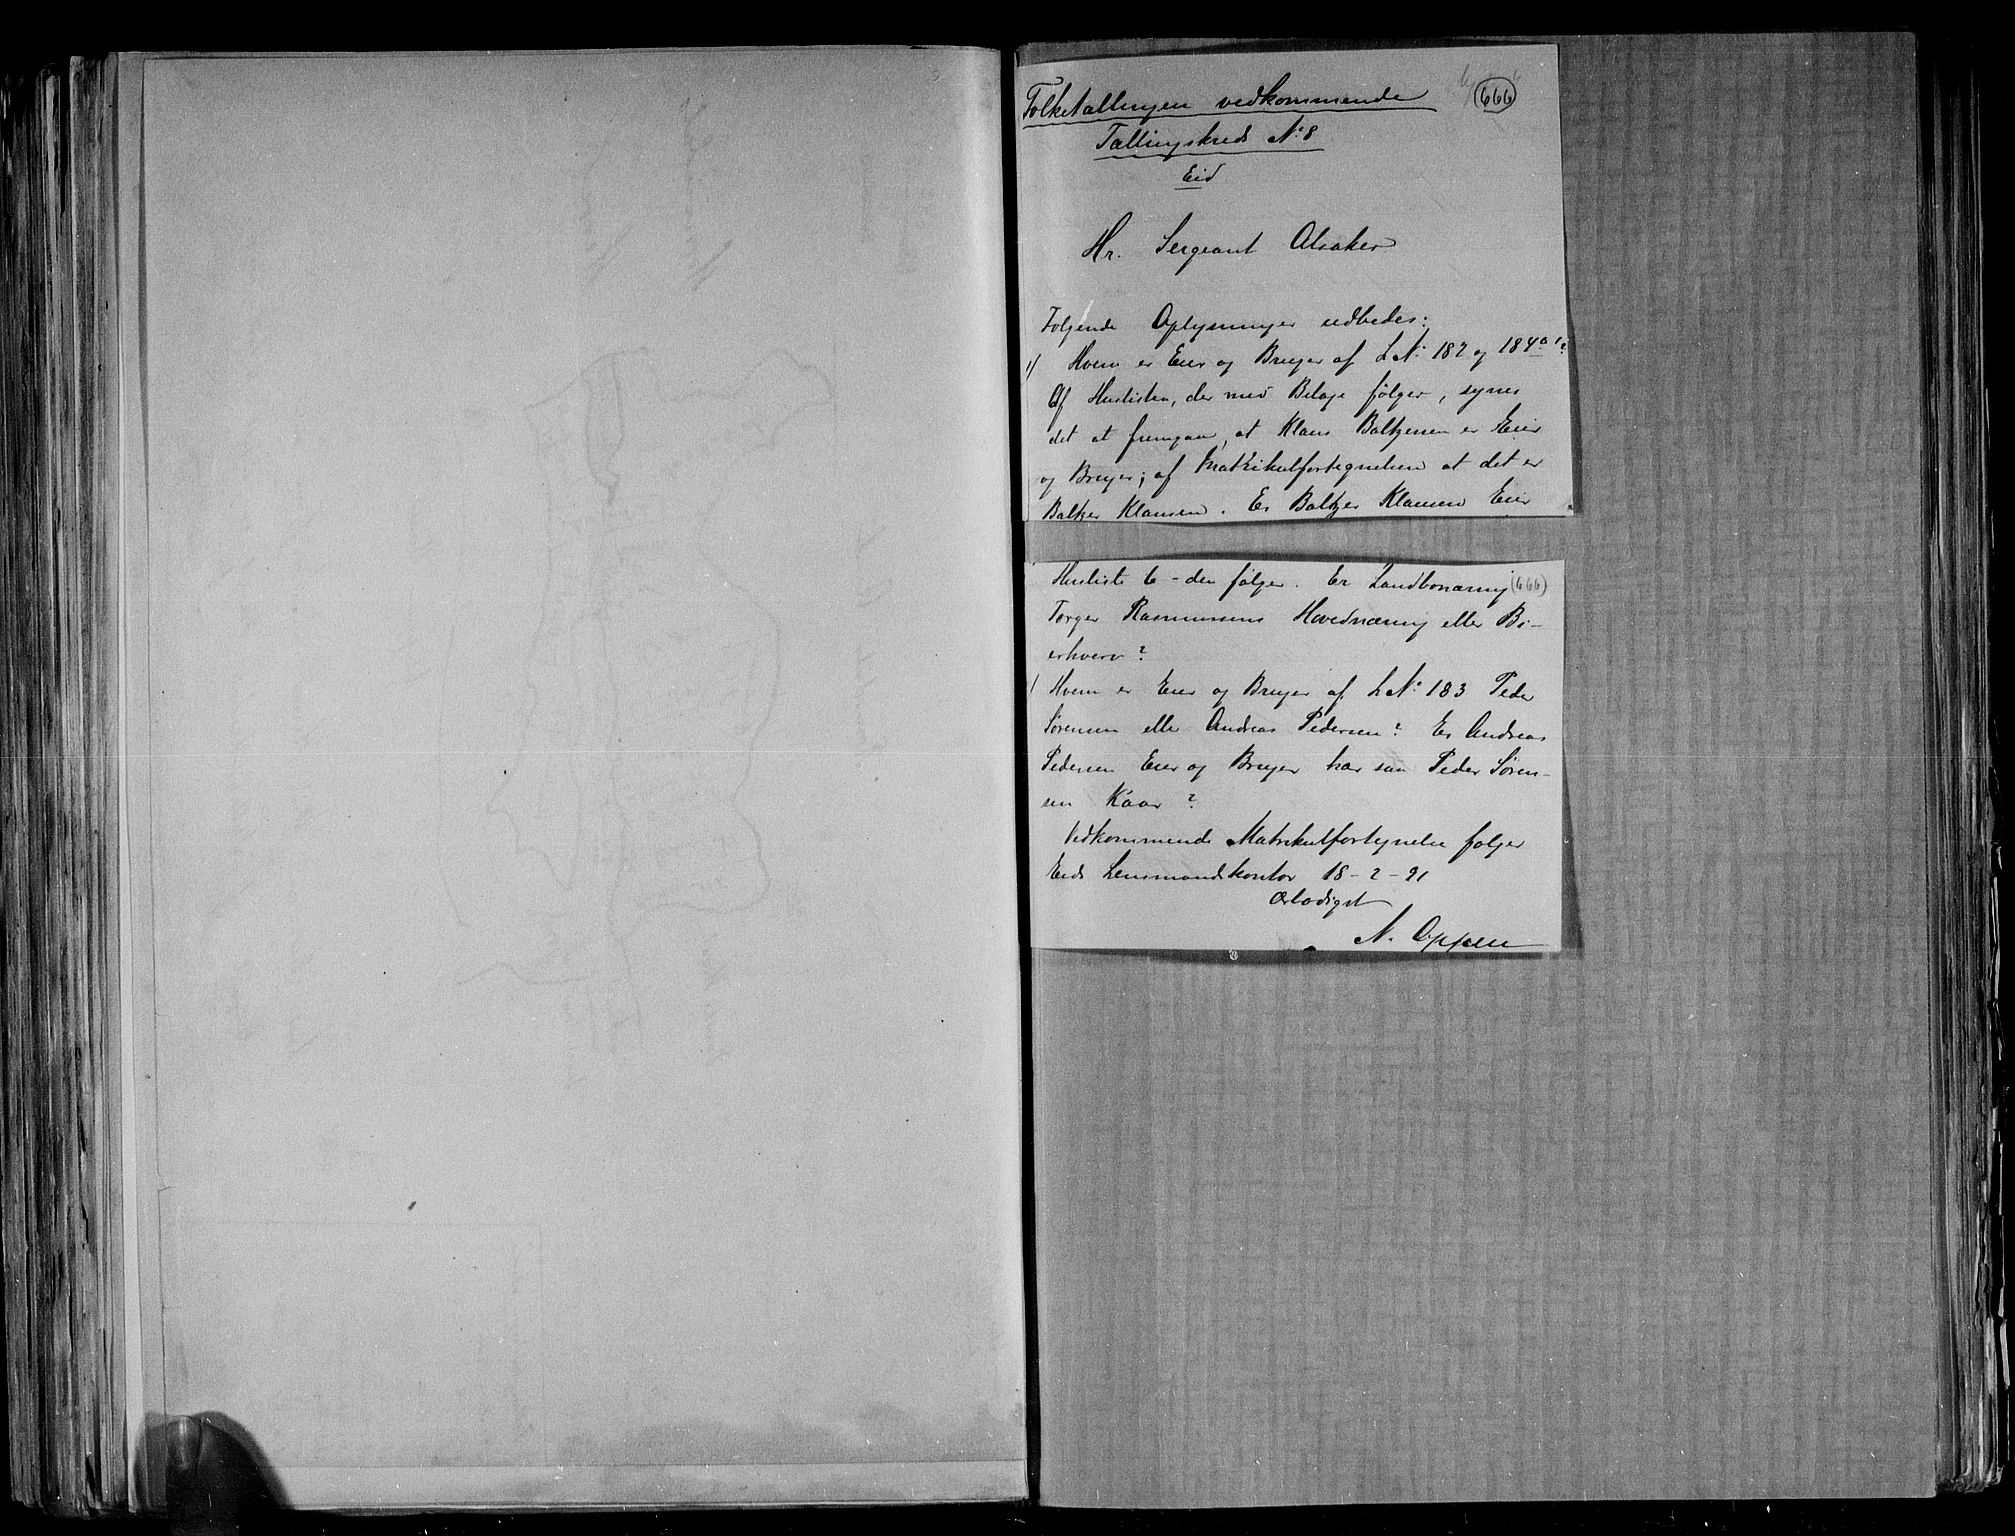 Folketællingen vedkommende
666
Tællingskreds No 8
Eid
Hr. Sergeant Alsaker
Følgende Oplysninger udbedes:
1) Hvem er Eier og Bruger af L No 182 og 184 a 1?
Af Huslisten, der med Bilage følger, synes
det at fremgaa, at Klaus Baltzersen er Eier
og Bruger; af Matrikulfortegnelsen at det er
Baltzer Klausen. Er Baltzer Klausen Eier
Husliste 6 - den følger. Er Landbonæring
(666)
Torger Rasmussens Hovednæring eller Bi-
erhverv?
) Hvem er Eier og Bruger af L No 183 Peder
Sørensen eller Andreas Pedersen? Er Andreas
Pedersen Eier og Bruger har saa Peder Søren-
sen Kaar?
Vedkommende Matrikulfortegnelse følger
Eids Lensmandskontor 18-2-91
Ærbødigst
N. Opsjøen